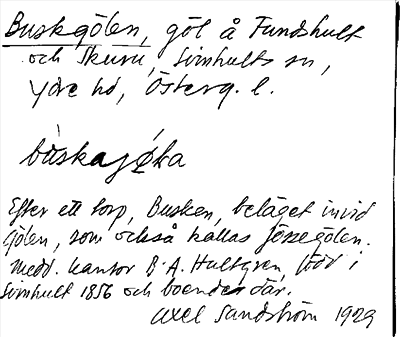 Buskgölen, göl å Fundshult
och Skuru, Svinhults sn,
Ydre hd, Österg. l.
bùskajø̀ka
Efter ett torp, Busken, beläget invid
gölen, som också kallas Jössegölen.
Medd. kantor B. A. Hultgren, född i
Svinhult 1856 och boende där.
Axel Sandström 1929